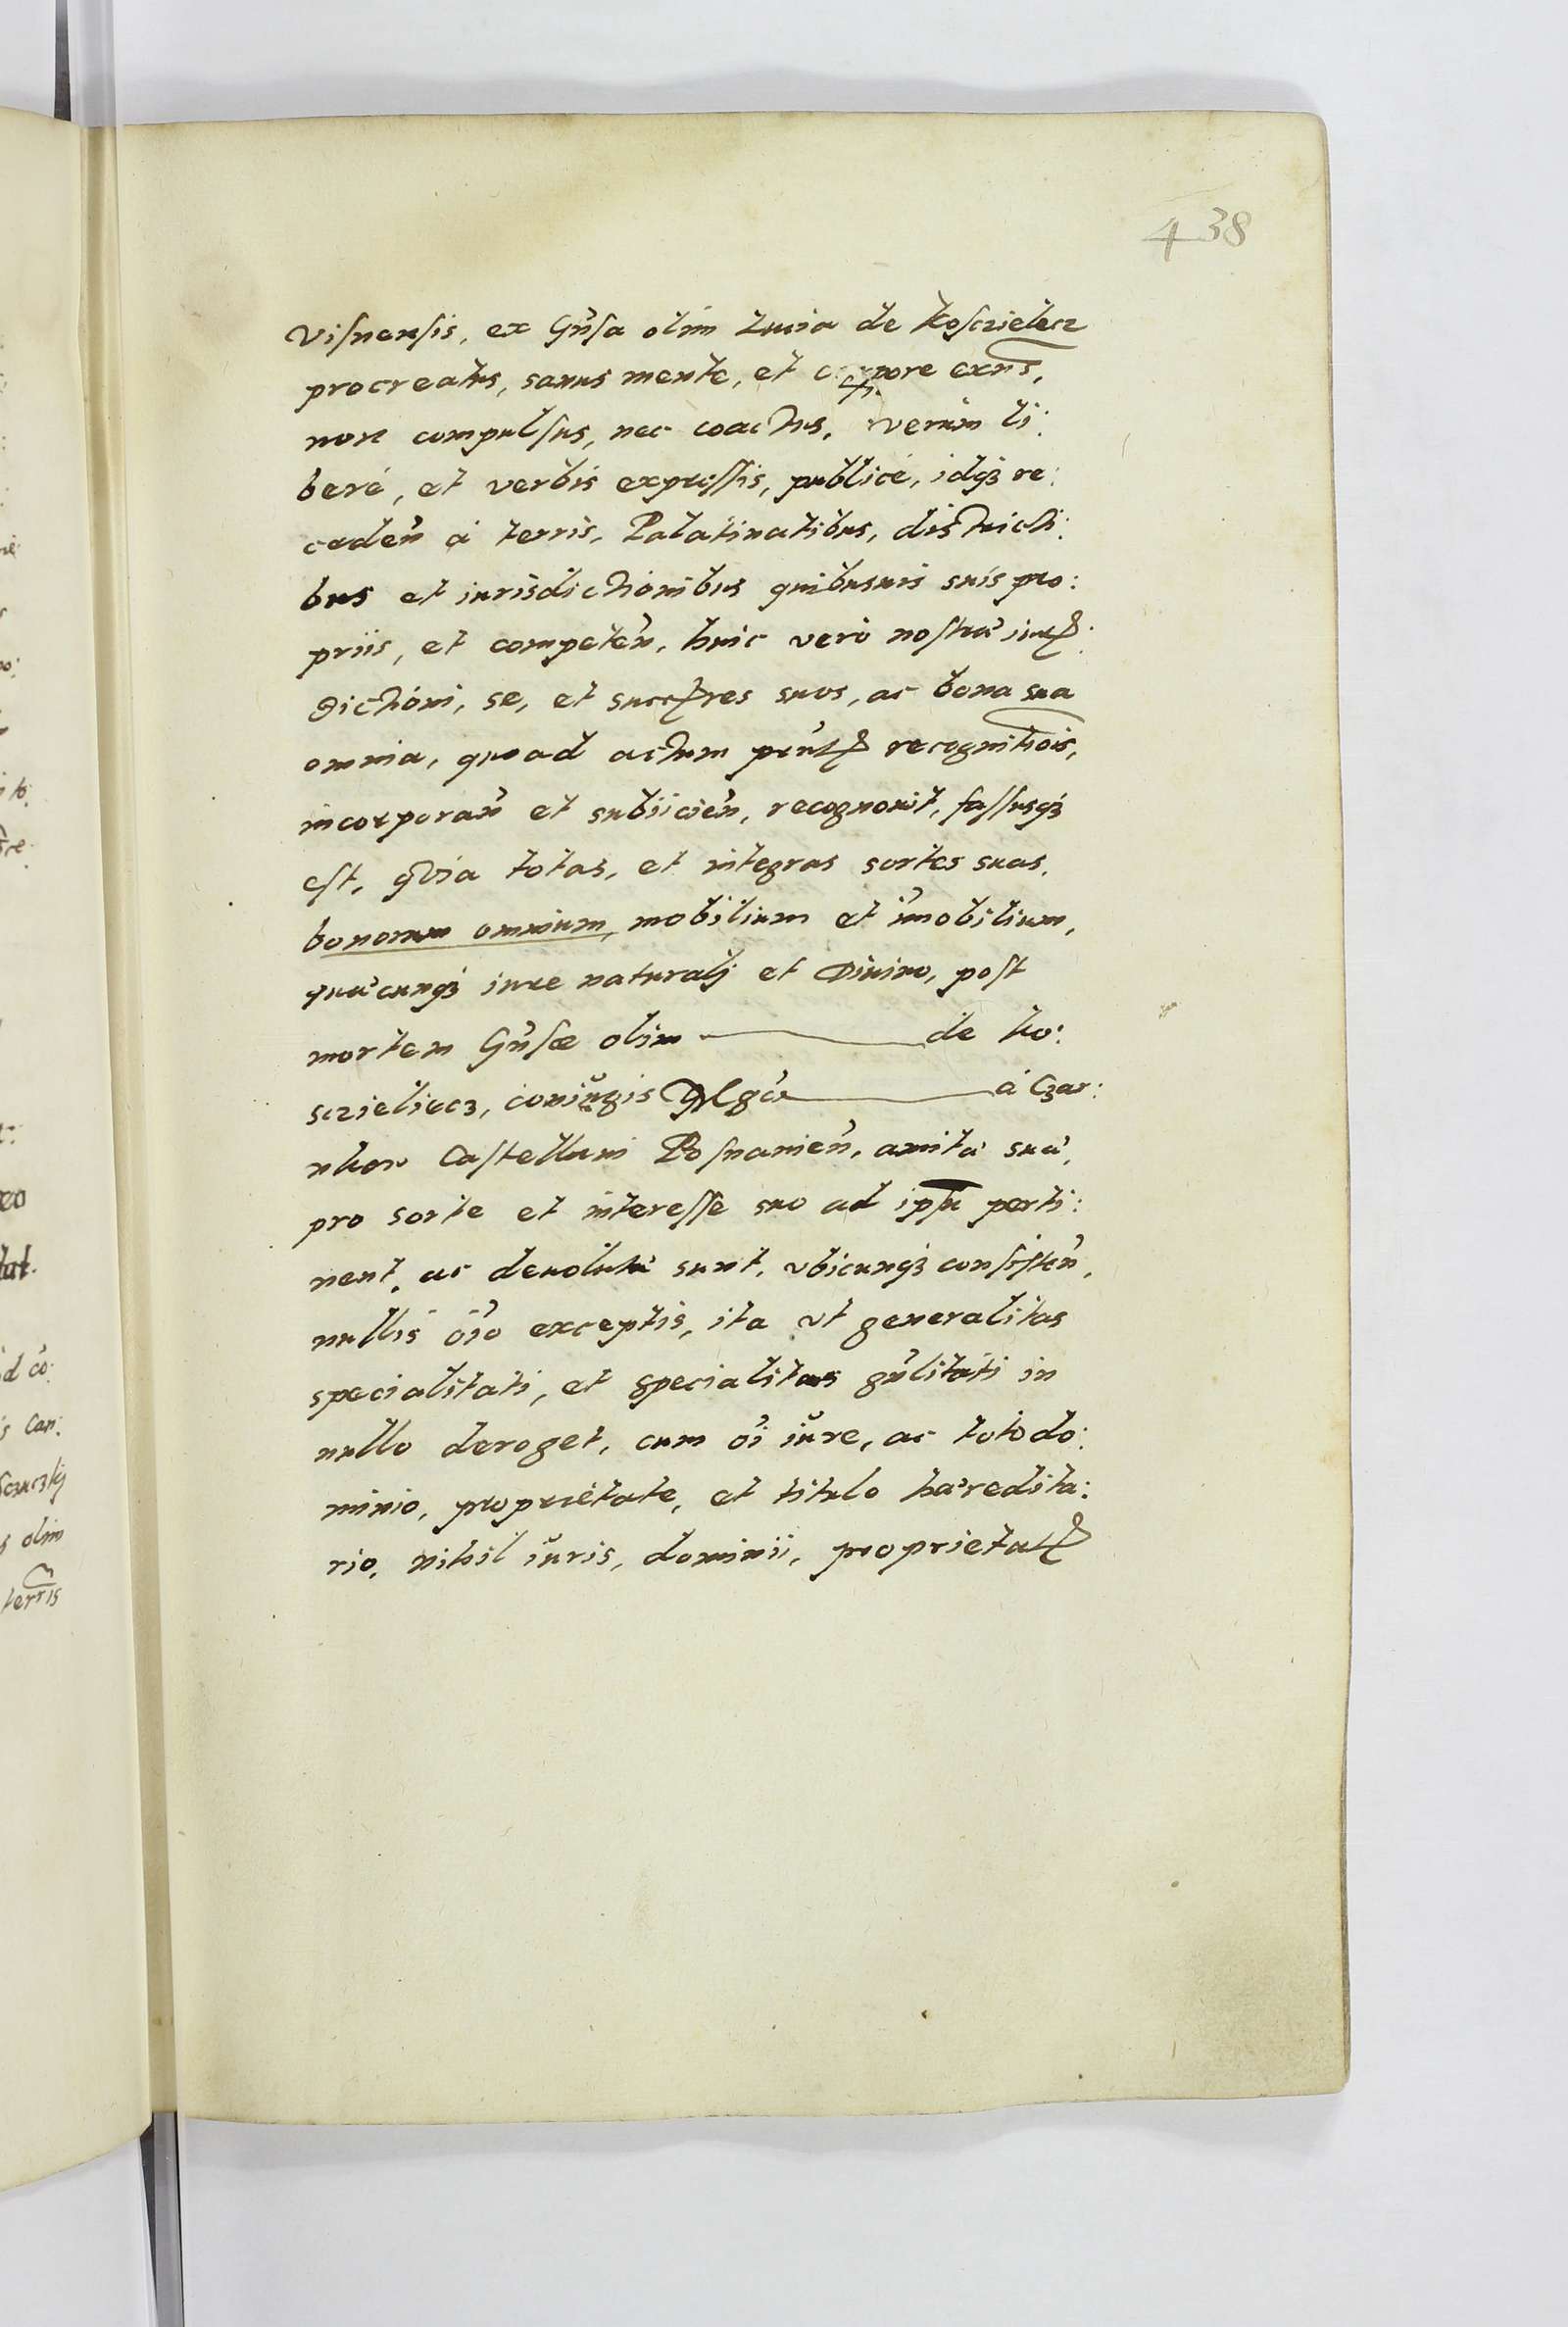 438
Visnensis, ex Gn̄sa olim Lucia de Kosczielecz
procreatus, sanus mente, et corpore exn̄s,
non compulsus, nec coactus, verùm li:
berè, et verbis expressis, publicè, idq3 re:
ceden̄ à terris, Palatinatibus, districti:
bus et iurisdictionibus quibusuis suis pro:
priis, et competen̄, huic verò nostræ iuris:
dictioni, se, et succres suos, ac bona sua
omnia, quoad actum pn̄tis recognitiois,
incorporan̄ et subiicien̄, recognouit, fassusq3
est, quia totas, et integras sortes suas,
bonorum omnium, mobilium et im̄obilium,
quæcunq3 iure naturalj et Diuino, post
mortem Gn̄sæ olim ——— de Ko:
sczieliecz, coniugis Mgci ——— à Czar:
nkow Castellani Posnanien̄, amitæ suæ,
pro sorte et interesse suo ad ipsū perti:
nent, ac deuolutæ sunt, vbicunq3 consisten̄,
nullis oīo exceptis, ita vt generalitas
specialitati, et specialitas gn̄litati in
nullo deroget, cum oī iure, ac toto do:
minio, proprietate, et titulo hæredita:
rio, nihil iuris, dominii, proprietatis